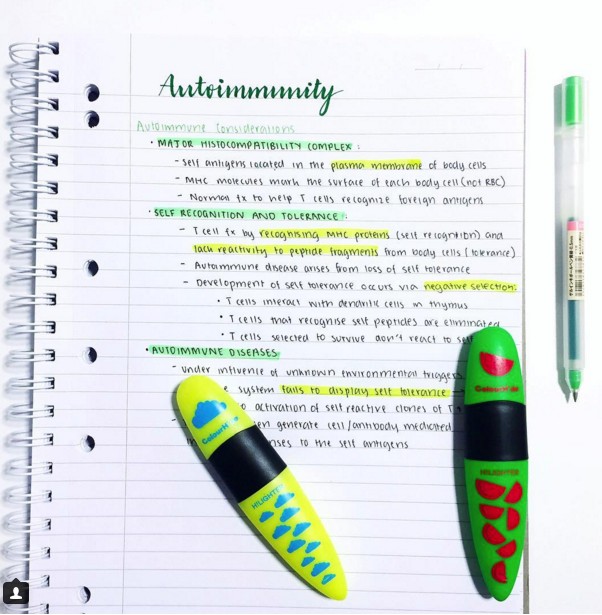 Autoimmunity
Autoimmune Considerations
· MAJOR HISTOCOMPATIBILITY COMPLEX :
- Self antigens located in the plasma membrane of body cells
- MHC molecules mark the surface of each body cell (not RBC)
- Normal fx to help T cells recognize foreign antigens
· SELF RECOGNITION AND TOLERANCE :
- T cell fx by recognising MHC proteins (self recognition) and
lack reactivity to peptide fragments from body cells (tolerance)
- Autoimmune disease arises from loss of self tolerance
- Development of self tolerance occurs via negative selection:
· T cells interact with dendritic cells in thymus
· T cells that recognise self peptides are eliminated
· T cells selected to survive don't react to self
· AUTOIMMUNE DISEASES
- under influence of unknown environmental triggers
system fails to display self tolerance
activation of self reactive clones of T
generate cell/antibody mediated
to the self antigens
HILIGHTER
HILIGHTER
0.5mm